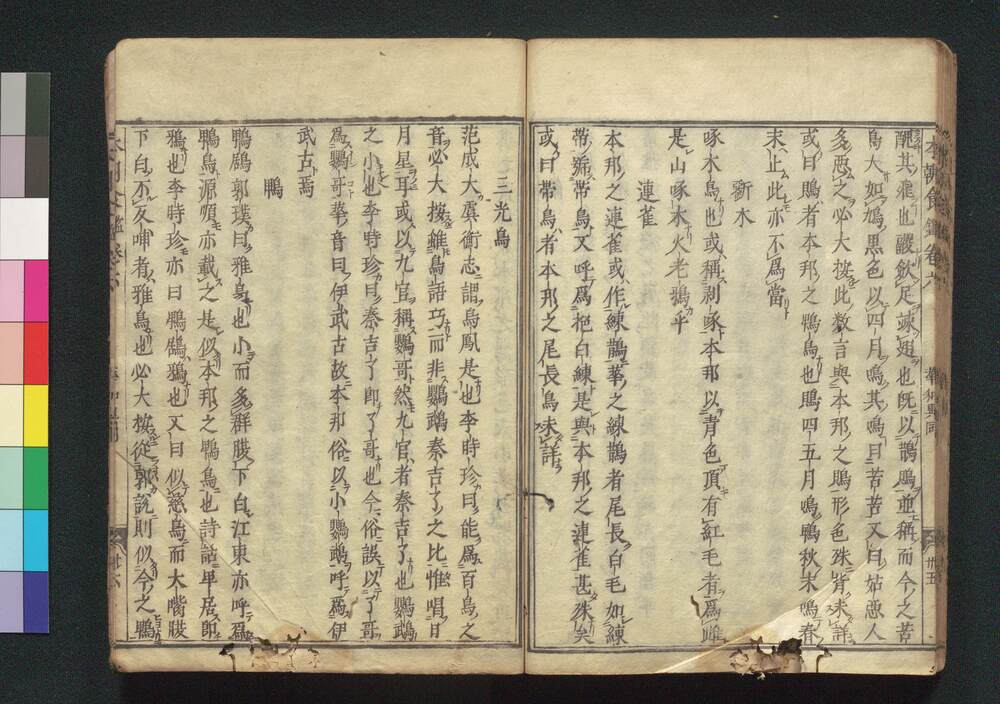 本朝食鑑卷六 華和異同 廿五
醜其飛也鵔歛足竦翅也旣以鵲鵙並稱而今之苦
鳥大如鳩黑色以四月鳴其鳴曰苦苦又曰姑惡人
多惡之必大按此数言與本邦之鵙形色殊皆未詳
或曰鵙者本邦之鴨鳥也鵙四五月鳴鴨秋末鳴春
末止此亦不爲當
斲木
啄木鳥也或稱剥啄本邦以青色頂有紅毛者爲雌
是山啄木火老鴉乎
連雀
本邦之連雀或作練鵲華之練鵲者尾長白毛如練
帶號帶鳥又呼爲拖白練是與本邦之連雀甚殊矣
或曰帶鳥者本邦之尾長鳥未詳
三光鳥
范成大虞衡志謂鳥鳳是也李時珍曰能爲百鳥之
音必大按雖鳥語巧而非鸚鵡秦吉了之比惟唱日
月星耳或以九官稱鸚哥然九官者秦吉了也鸚鵡
之小也李時珍曰秦吉了即了哥也今俗誤以了哥
爲鸚哥華音曰伊武古故本邦俗以小鸚鵡呼爲伊
武古焉
鵯
鵯鶋郭璞曰雅烏也小而多群腹下白江東亦呼爲
鵯烏源順亦載之是似本邦之鵯鳥也詩詁卑居即
鴉也李時珍亦曰鵯鶋鴉也又曰似慈烏而大觜腹
下白不反哺者雅烏也必大按從郭說則似今之鵯
本朝食鑑卷六 華和異同 廿六